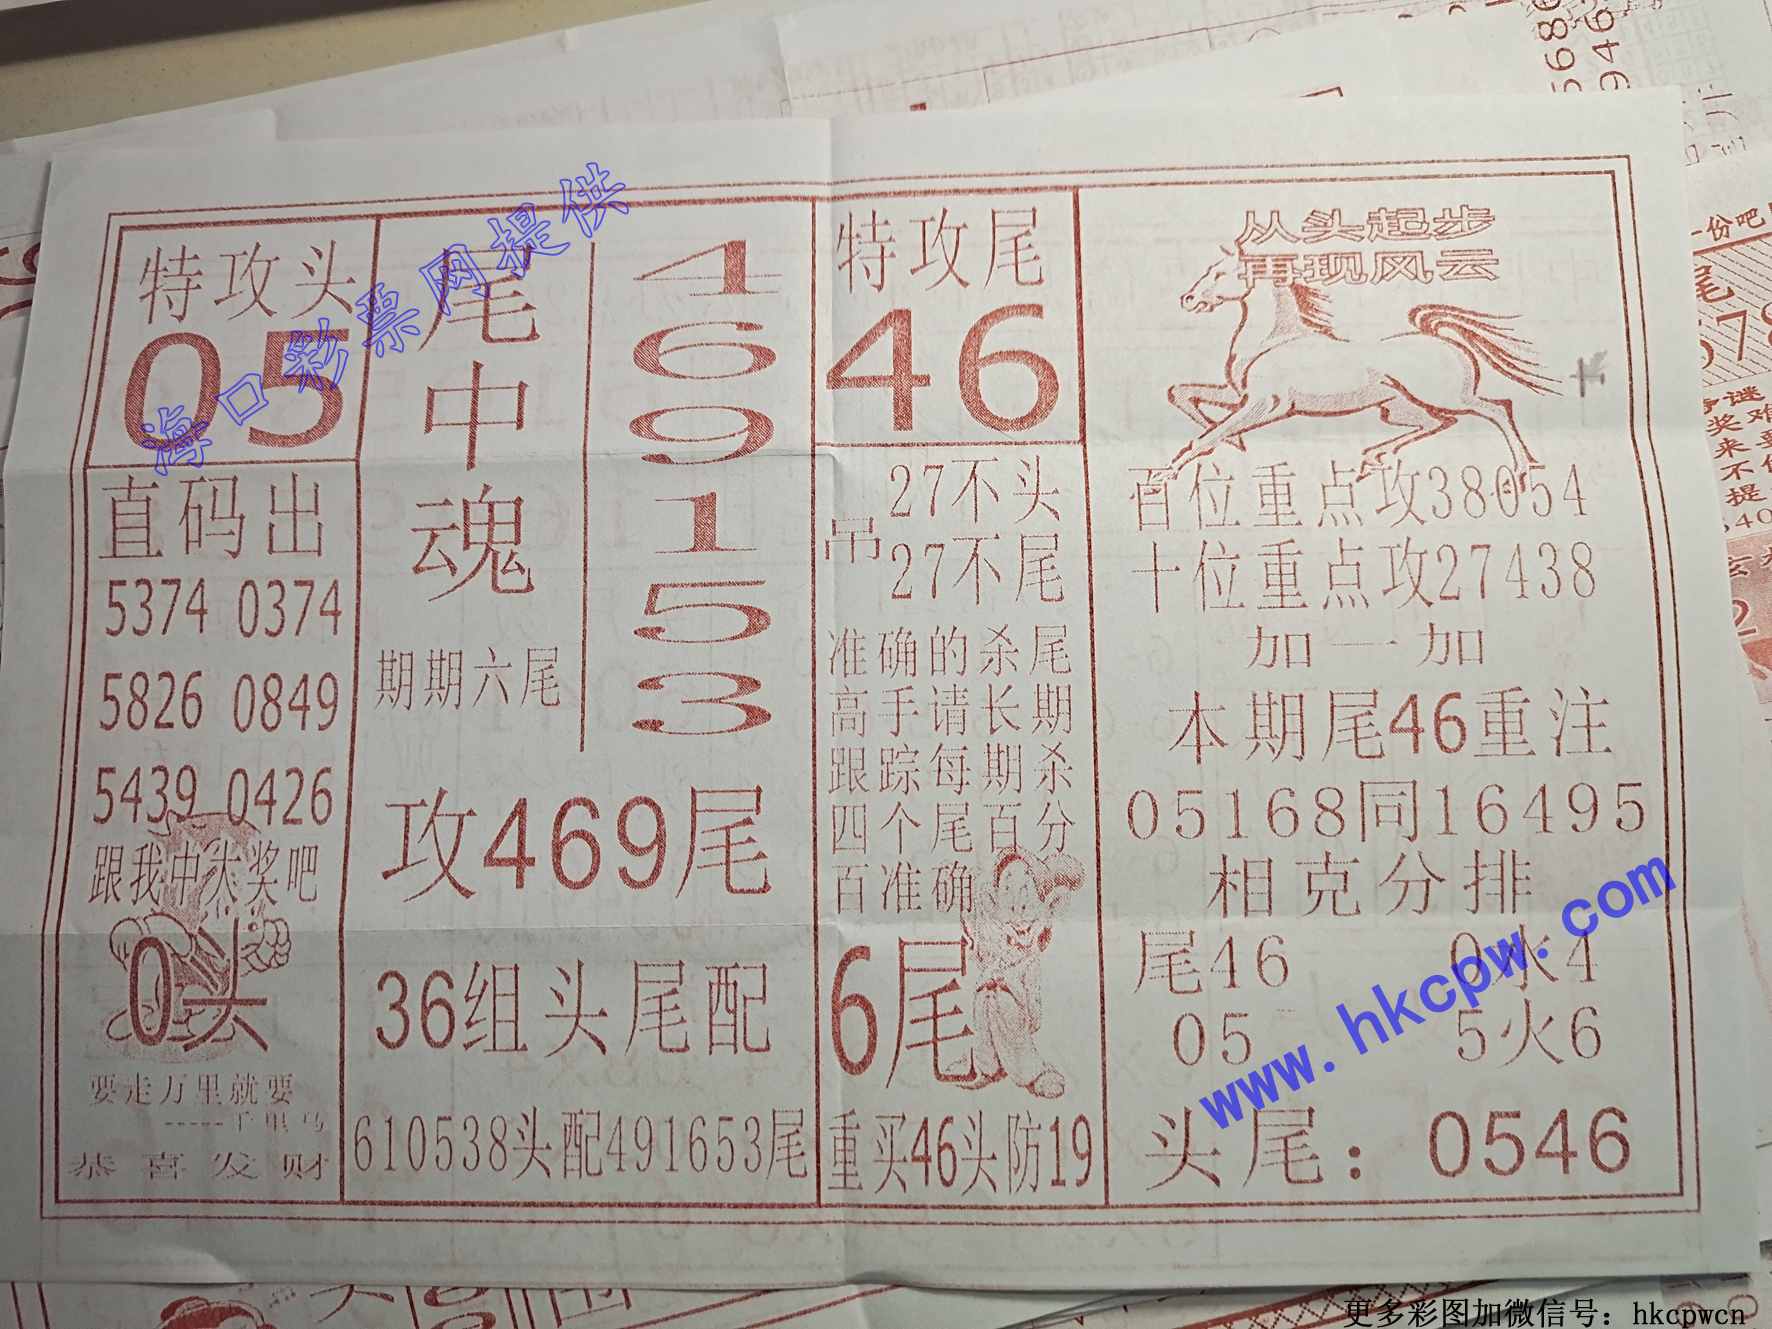 海口彩票网提供
特攻头
05
直码出
5374 0374
5826 0849
5439 0426
跟我中大奖吧
0头
要走万里就要
-----千里马
恭喜发财
尾中魂
期期六尾
4
6
9
1
5
3
攻469尾
36组头尾配
610538头配491653尾
特攻尾
46
吊
27不头
27不尾
准确的杀尾
高手请长期
跟踪每期杀
四个尾百分
百准确
6尾
重买46头防19
从头起步
再现风云
百位重点攻38054
十位重点攻27438
加一加
本期尾46重注
05168同16495
相克分排
尾46 0水4
05 5火6
头尾：0546
www.hkcpw.com
5686
946
份吧
尾
678
谜
奖难
来
不
提
更多彩图加微信号：hkcpwcn